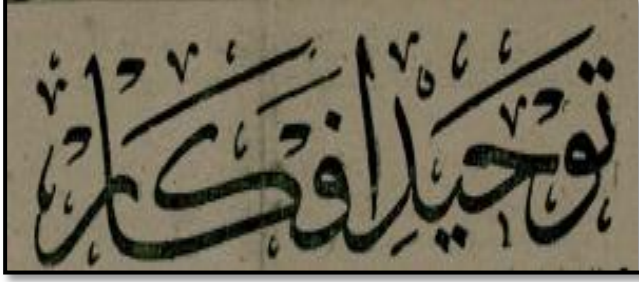 توحيد افكار